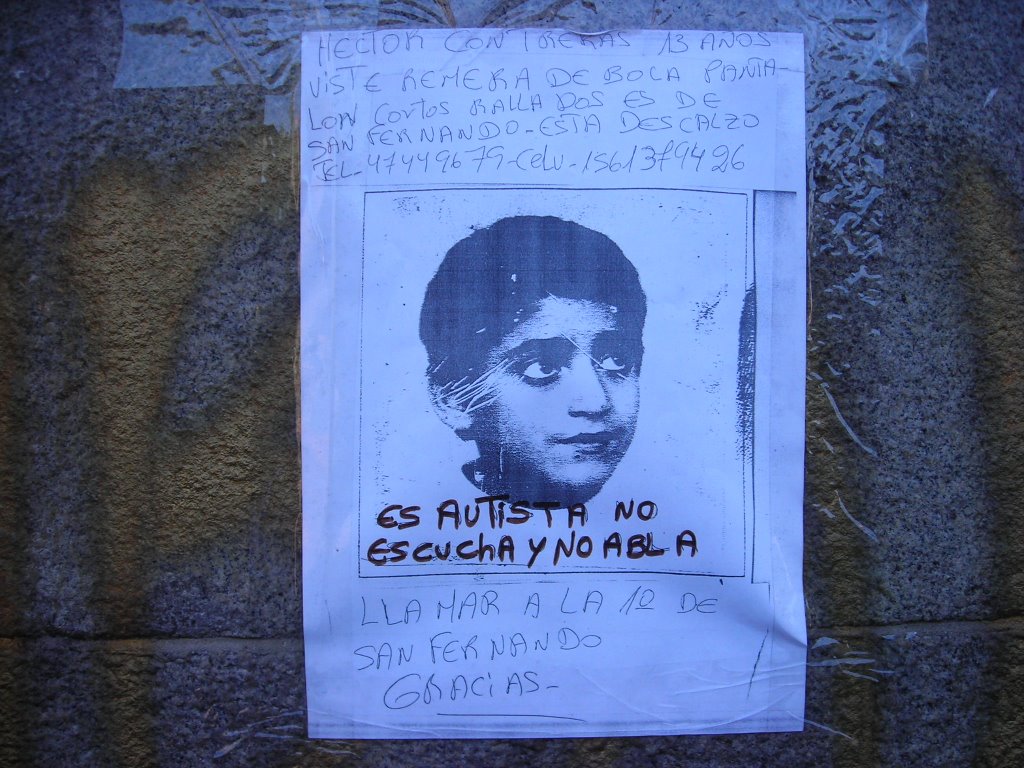 HECTOR CONTRERAS 13 AÑOS
VISTE REMERA DE BOCA PANTA
LON CORTOS RALLADOS ES DE
SAN FERNANDO - ESTA DESCALZO
TEL - 47449679 - Celu - 1561379426
ES AUTISTA NO
ESCUCHA Y NO ABLA
LLAMAR A LA 1º DE
SAN FERNANDO
GRACIAS -